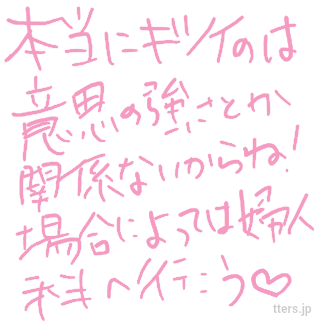 本当にギツイのは
意思の強さとか
関係ないからね!
場合によっては婦人
科へ行こう♡
tters.jp